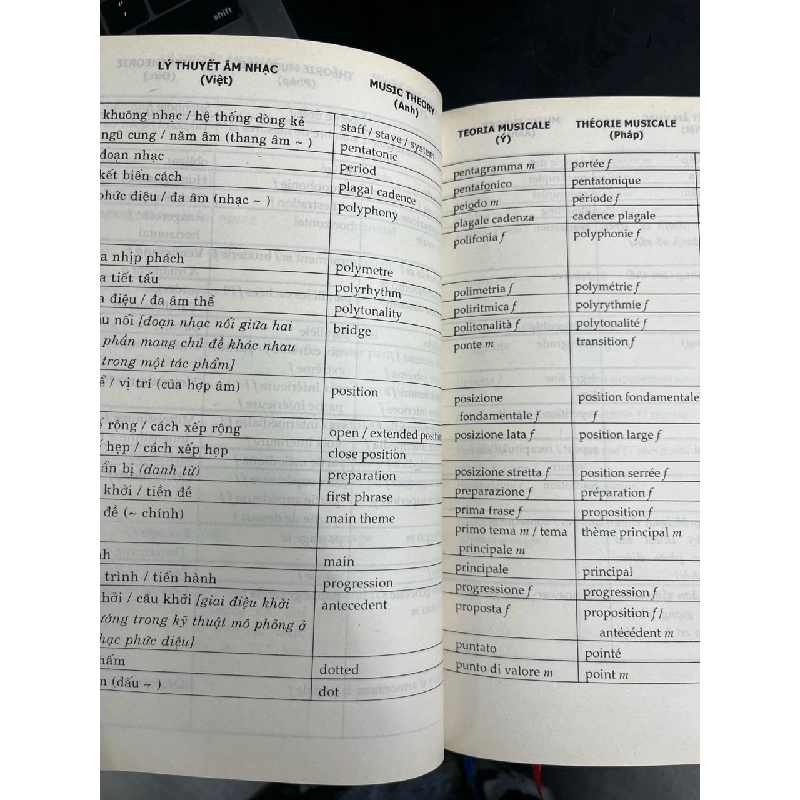 shift
LÝ THUYẾT ÂM NHẠC
(Việt)
khuông nhạc / hệ thống dòng kẻ
ngũ cung / năm âm (thang âm ~ )
đoạn nhạc
kết biến cách
phức điệu / đa âm (nhạc ~ )
a nhịp phách
a tiết tấu
a điệu / đa âm thể
nối [đoạn nhạc nối giữa hai
phần mang chủ đề khác nhau
trong một tác phẩm]
/ vị trí (của hợp âm)
rộng / cách xếp rộng
hẹp / cách xếp hẹp
bị (danh từ)
khởi / tiền đề
đề (~ chính)
trình / tiến hành
/ câu khởi [giai điệu khởi
trong kỹ thuật mô phỏng ở
phức điệu]
(dấu ~ )
MUSIC THEORY
(Anh)
staff / stave / system
pentatonic
period
plagal cadence
polyphony
polymetre
polyrhythm
polytonality
bridge
position
open / extended position
close position
preparation
first phrase
main theme
main
progression
antecedent
dotted
dot
TEORIA MUSICALE
(Ý)
pentagramma m
pentafonico
peiodo m
plagale cadenza
polifonia f
polimetria f
poliritmica f
politonalità f
ponte m
posizione
fondamentale f
posizione lata f
posizione stretta f
preparazione f
prima frase f
primo tema m / tema
principale m
principale
progressione f
proposta f
puntato
punto di valore m
THÉORIE MUSICALE
(Pháp)
portée f
pentatonique
période f
cadence plagale
polyphonie f
polymétrie f
polyrythmie f
polytonalité f
transition f
position fondamentale
f
position large f
position serrée f
préparation f
proposition f
thème principal m
principal
progression f
proposition f /
antécédent m
pointé
point m